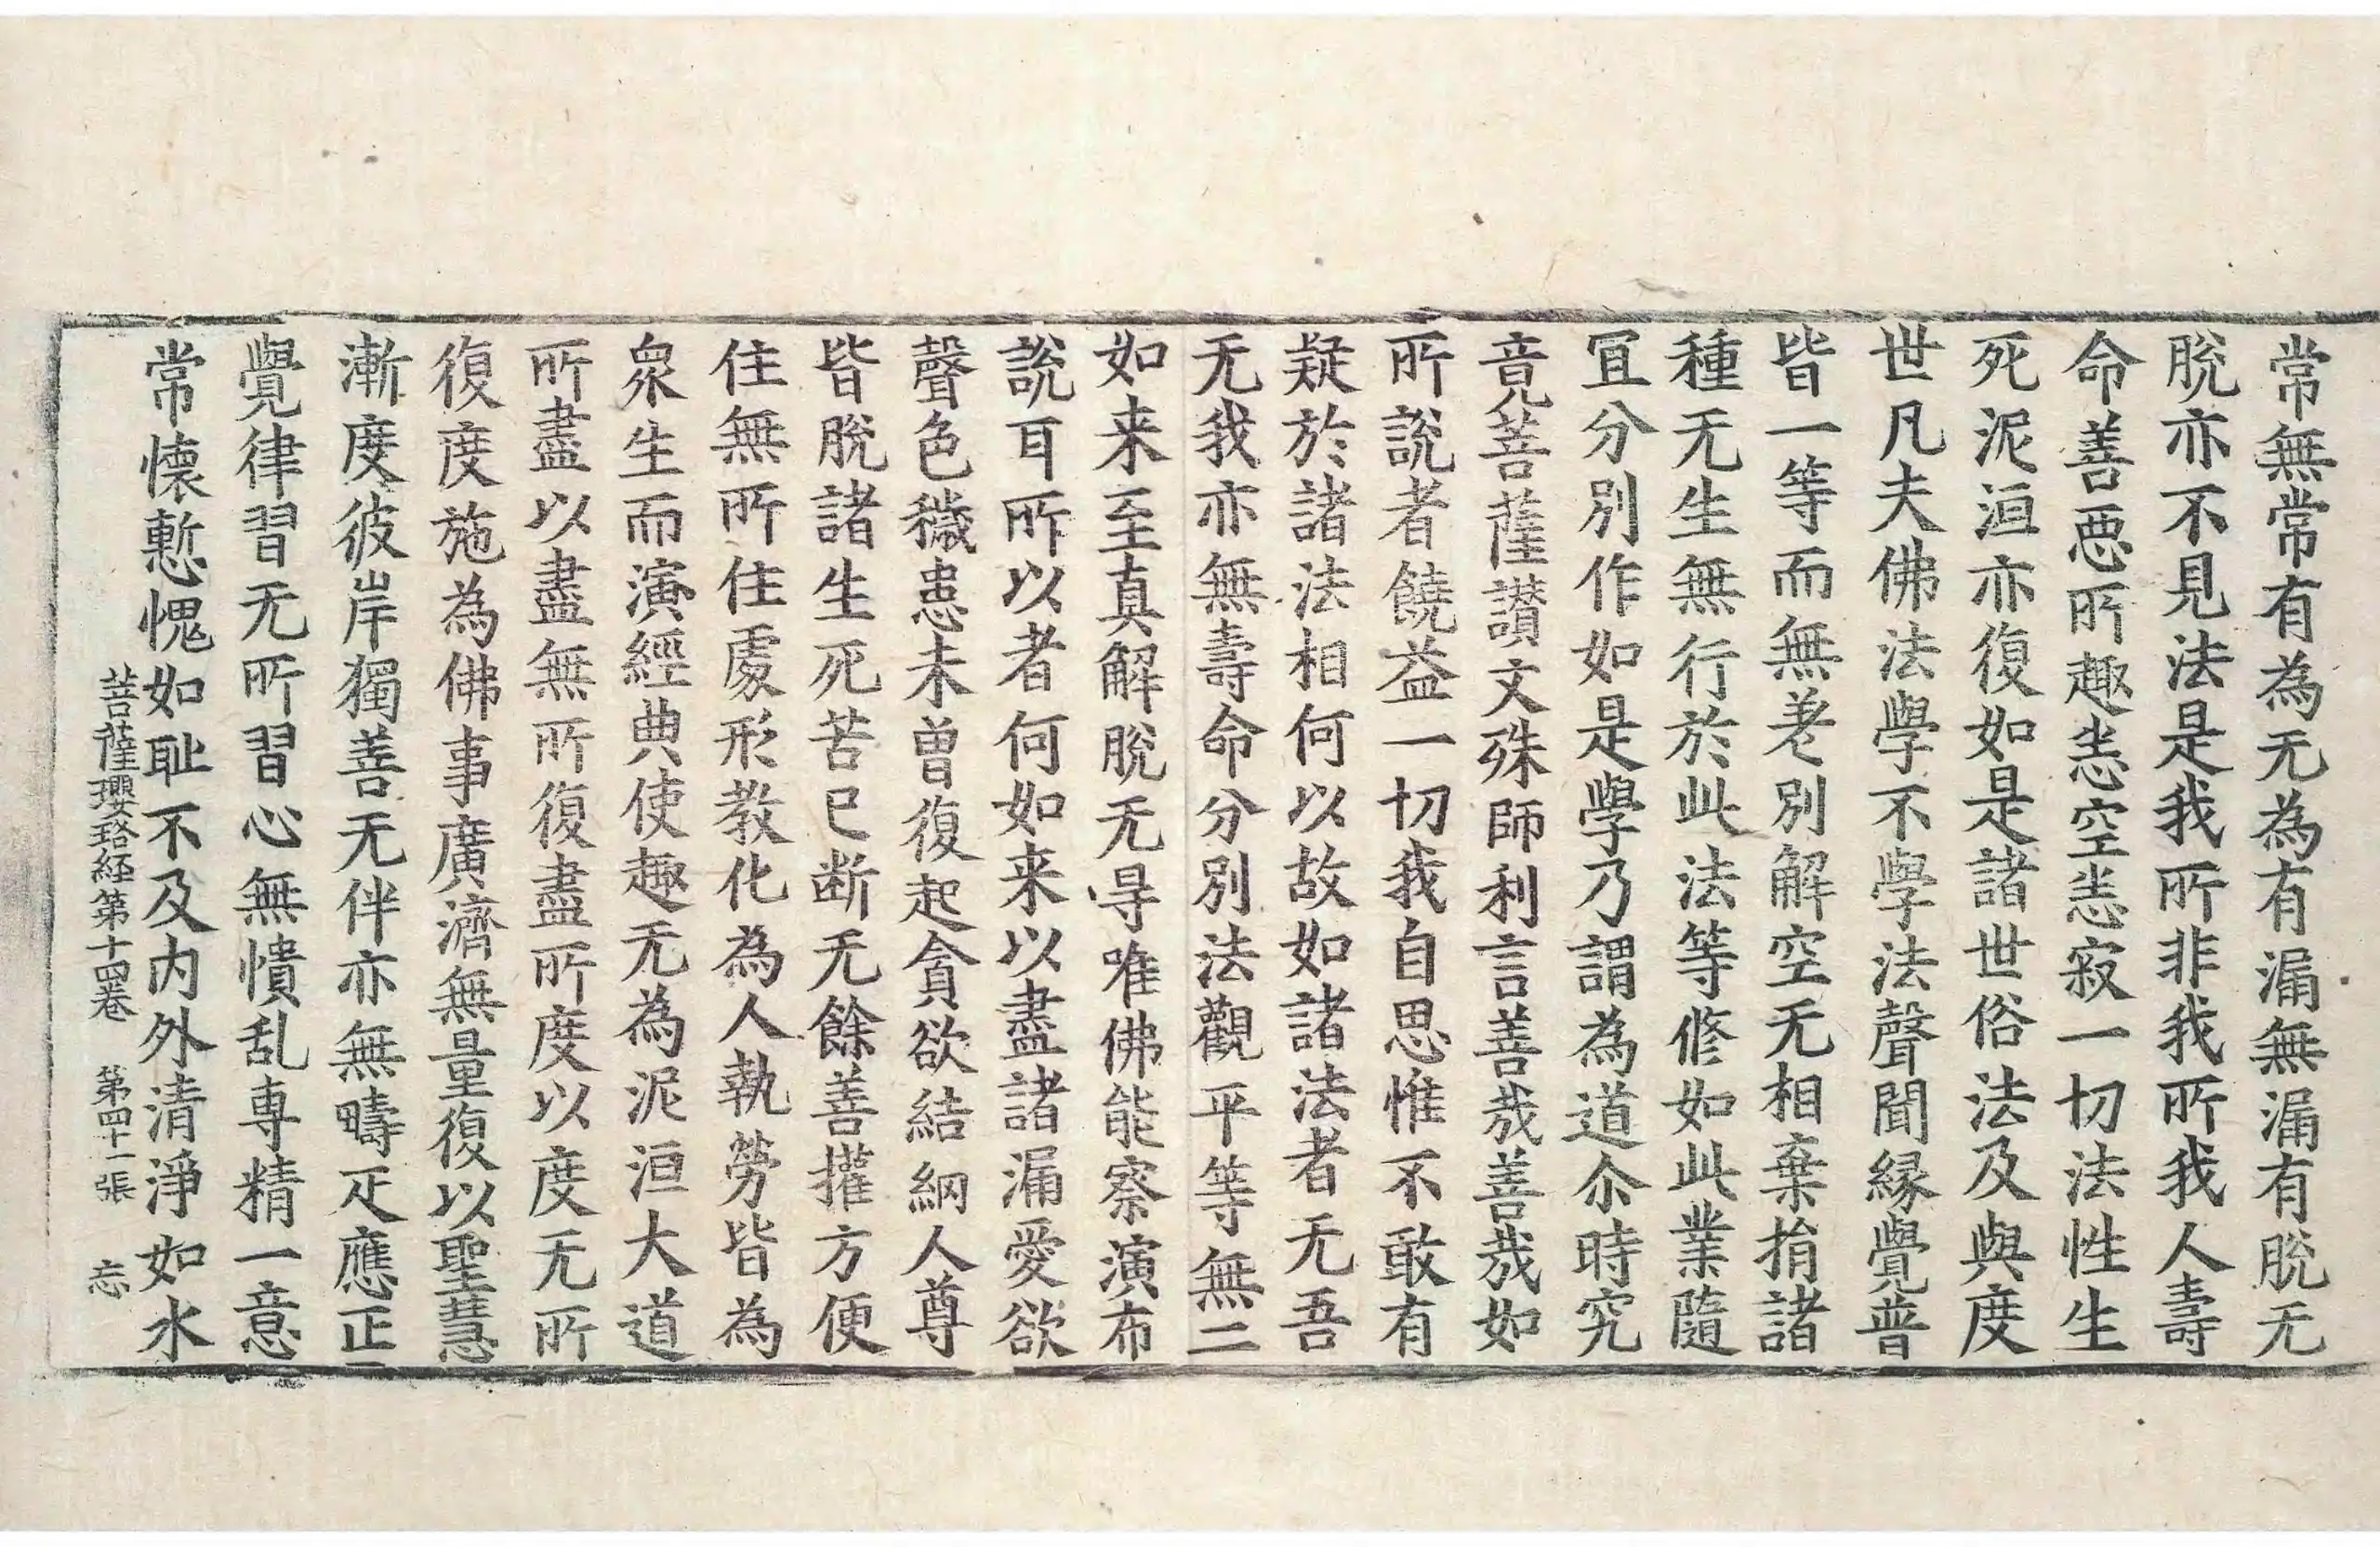 常無常有為无為有漏無漏有脫无
脫亦不見法是我所非我所我人壽
命善惡所趣恚空恚寂一切法性生
死泥洹亦復如是諸世俗法及與度
世凡夫佛法學不學法聲聞緣覺普
皆一等而無差別解空无相棄捐諸
種无生無行於此法等修如此業隨
冝分別作如是學乃謂為道尒時究
竟菩薩讃文殊師利言善哉善哉如
所說者饒益一切我自思惟不敢有
疑於諸法相何以故如諸法者无吾
无我亦無壽命分別法觀平等無二
如来至真解脫无㝵唯佛能察演布
說耳所以者何如来以盡諸漏愛欲
聲色穢患未曾復起貪欲結網人尊
皆脫諸生死苦已断无餘善權方便
住無所住處形教化為人執勞皆為
衆生而演經典使趣无為泥洹大道
所盡以盡無所復盡所度以度无所
復度施為佛事廣濟無量復以聖慧
漸度彼岸獨善无伴亦無疇疋應正
覺律習无所習心無憒乱専精一意
常懷慙愧如耻不及内外清淨如水
菩薩瓔珞經第十四卷 第四十一張 忘